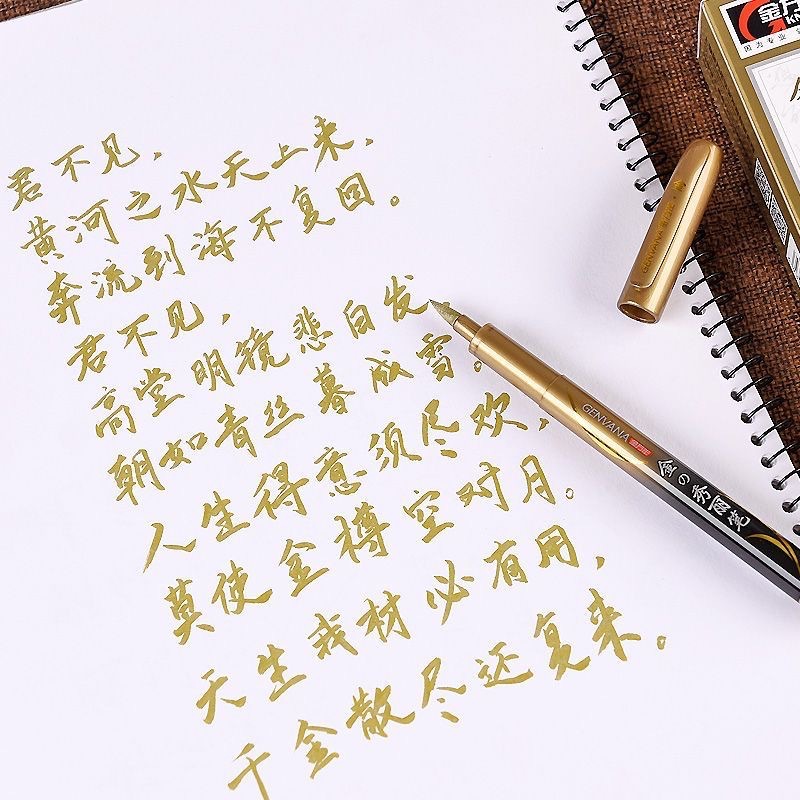 君不见，
黄河之水天上来，
奔流到海不复回。
君不见，
高堂明镜悲白发
朝如青丝暮成雪。
人生得意须尽欢，
莫使金樽空对月。
天生我材必有用，
千金散尽还复来。
GENVANA
GENVANA
金の秀丽笔